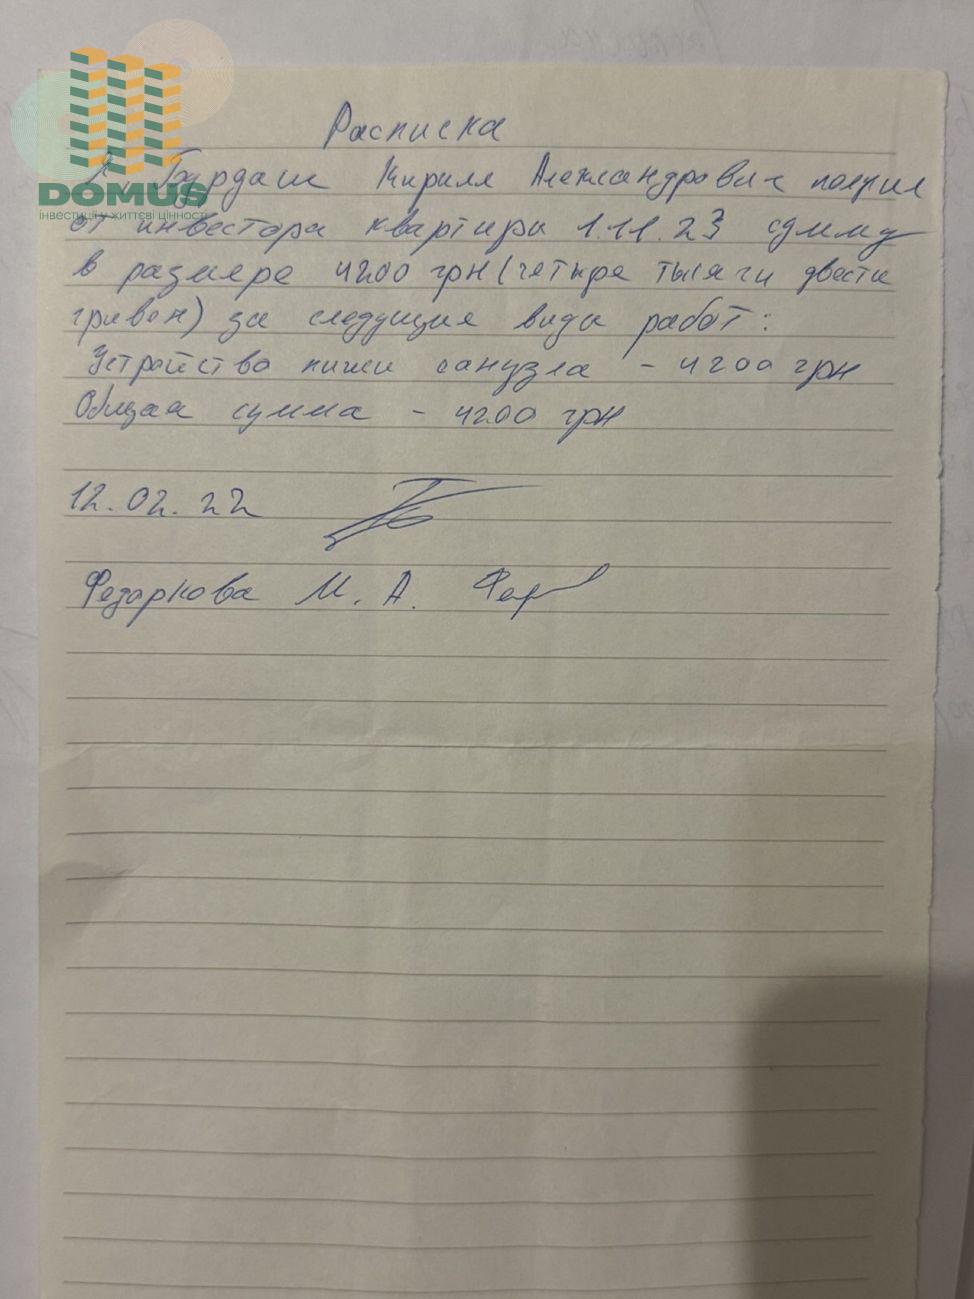 DOMUS
інвестиції у життєві цінності
Расписка
Я Бурдаш Кирилл Александрович получил
от инвестора квартиры 1.11.23 сумму
в размере 4200 грн (четыре тысячи двести
гривен) за следущие виды работ:
Устройство ниши санузла - 4200 грн
Общая сумма - 4200 грн
12.02.22
М. А.